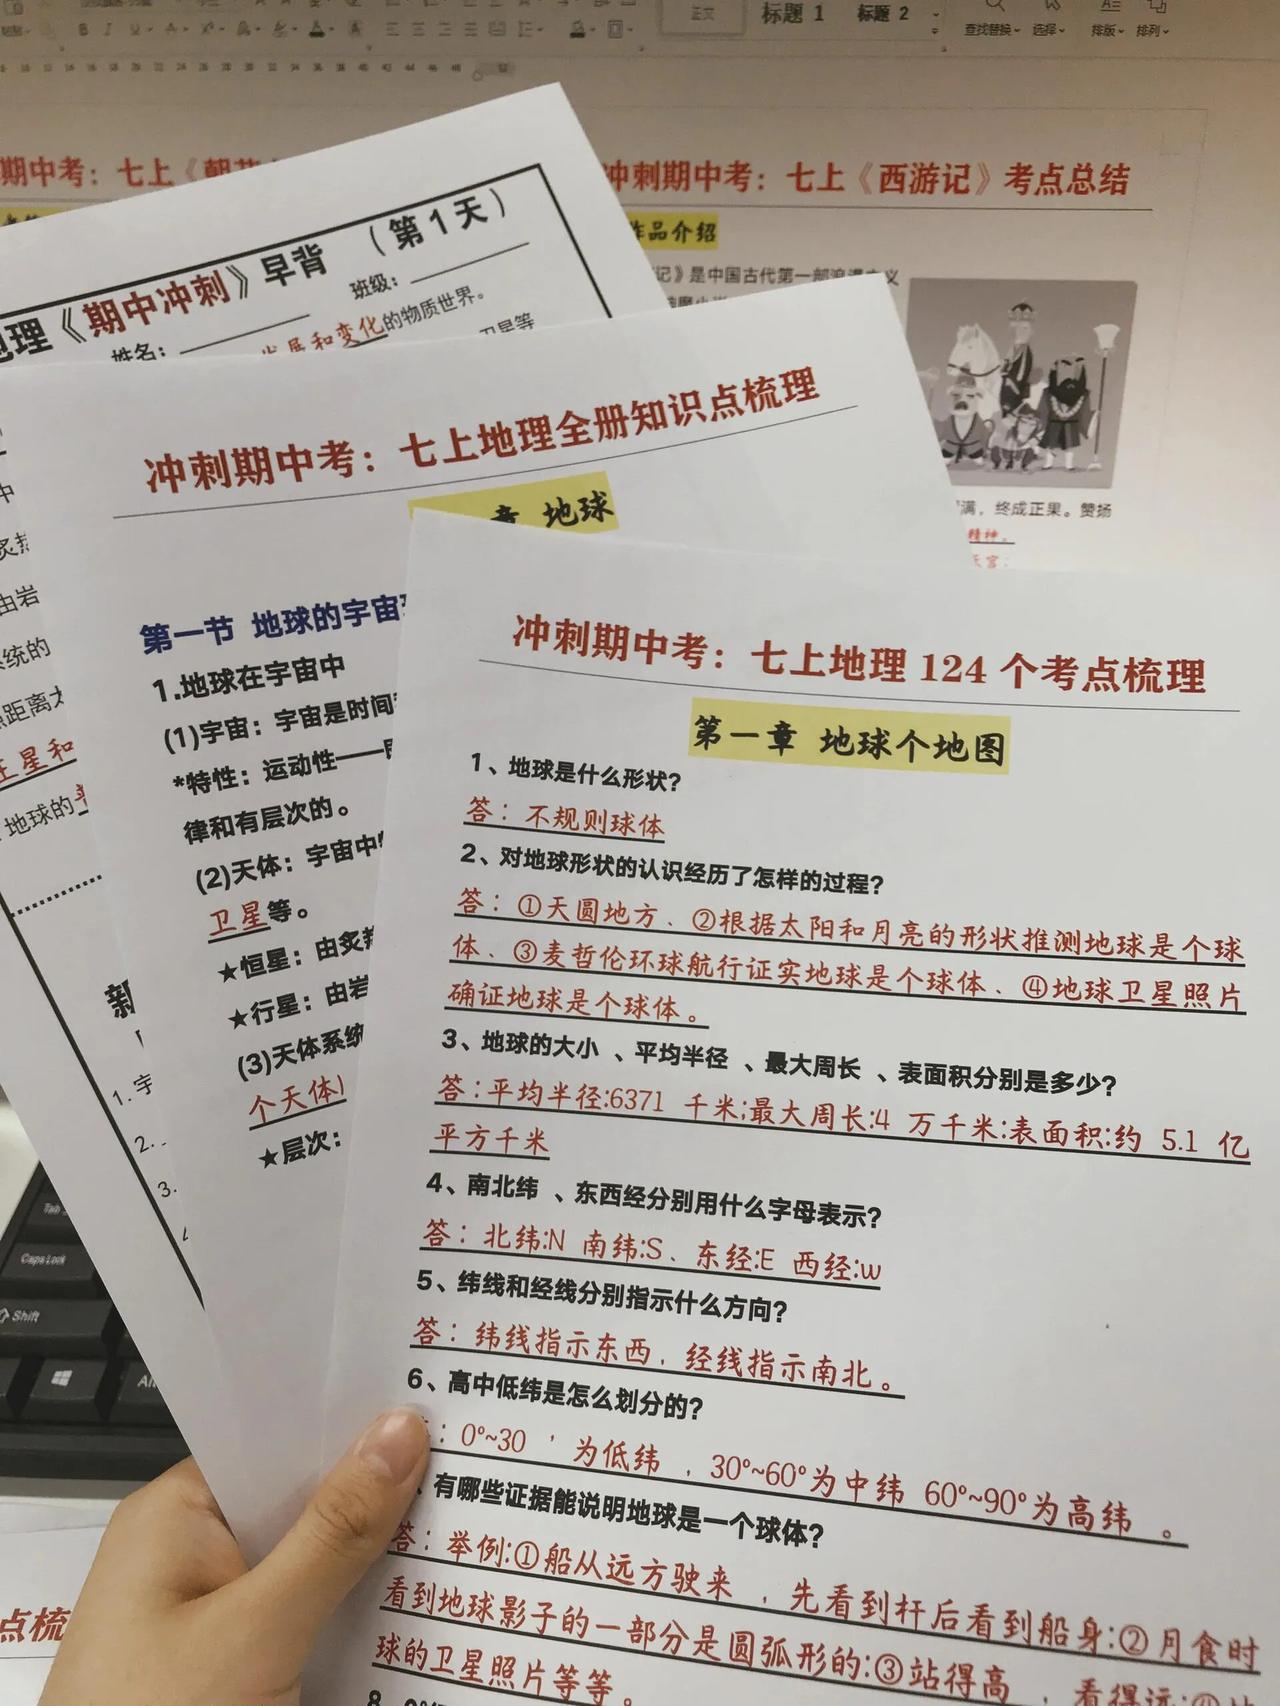 标题 1
标题 2
正文
查找替换
选择
排版
排列
期中考：七上《朝
冲刺期中考：七上《西游记》考点总结
作品介绍
记》是中国古代第一部浪漫主义
满，终成正果。赞扬
精神。
天宫：
地理《期中冲刺》早背 （第1天）
班级：
姓名：
发展和变化的物质世界。
卫星等
中
炙热
由岩
系统的
距离太
卫星和
地球的
新
1. 宇
2.
3.
冲刺期中考：七上地理全册知识点梳理
章 地球
第一节 地球的宇宙
1.地球在宇宙中
(1)宇宙：宇宙是时间
*特性：运动性——
律和有层次的。
(2)天体：宇宙中
卫星等。
★恒星：由炙热
★行星：由岩
(3)天体系统
个天体
★层次：
冲刺期中考：七上地理 124 个考点梳理
第一章 地球个地图
1、地球是什么形状？
答：不规则球体
2、对地球形状的认识经历了怎样的过程？
答：①天圆地方、②根据太阳和月亮的形状推测地球是个球
体、③麦哲伦环球航行证实地球是个球体、④地球卫星照片
确证地球是个球体。
3、地球的大小 、平均半径 、最大周长 、表面积分别是多少？
答:平均半径:6371 千米;最大周长:4 万千米;表面积:约 5.1 亿
平方千米
4、南北纬 、东西经分别用什么字母表示？
答：北纬:N 南纬:S、东经:E 西经:w
5、纬线和经线分别指示什么方向？
答：纬线指示东西，经线指示南北。
6、高中低纬是怎么划分的？
：0°~30 ′为低纬 ，30°~60°为中纬 60°~90°为高纬 。
、有哪些证据能说明地球是一个球体？
答：举例:①船从远方驶来 ，先看到杆后看到船身:②月食时
看到地球影子的一部分是圆弧形的:③站得高 看得远:
球的卫星照片等等。
8、
点梳
Tab
Caps Lock
Shift
Alt